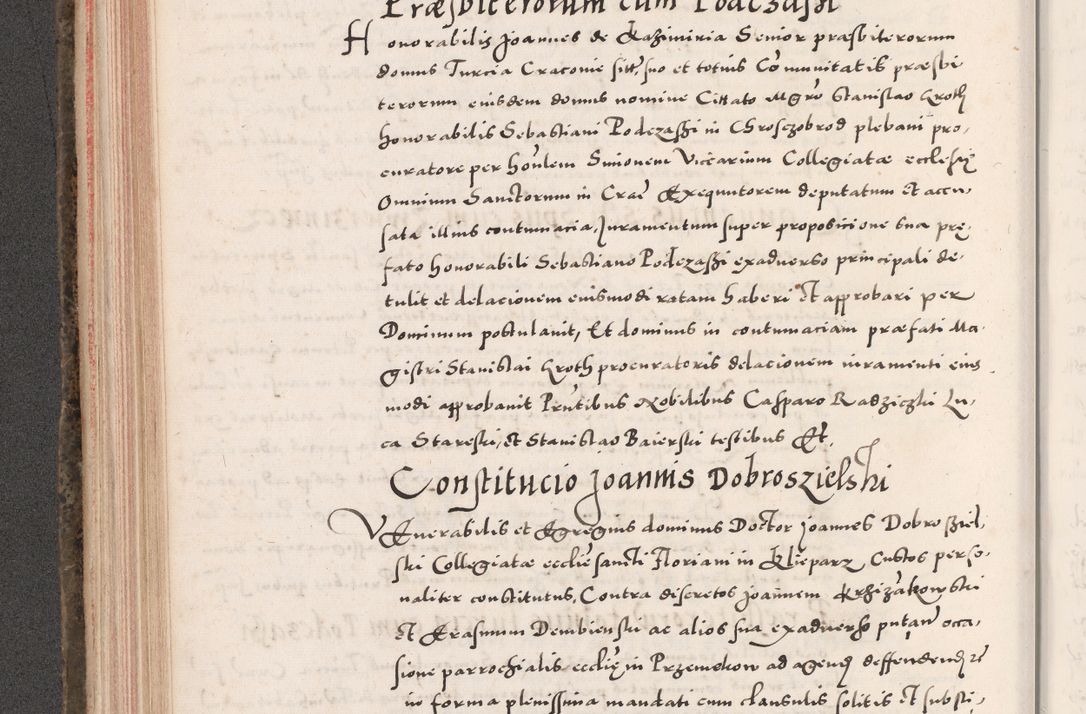 Præsbiterorum cum Podczaski
Honorabilis Joannes de Kazimiria Senior præsbiterorum
domus Turcia Craconie sitt, suo et totius Comunitatis præsbi
terorum eiusdem domus nomine Cittato Mgro Stanislao Kroth
honorabilis Sebastiani Podczaski in Chrosczobrod plebani pro,
curatore per honlem Simonem Vicearium Collegiatæ ecclesię
Omnium Sanctorum in Crac Exequutorem deputatum et accu,
sata illius contumacia, Juramentum super propositione sua prę,
fato honorabili Sebastiano Podczaski exaduerso principali de,
tulit et delacionem eiusmodi ratam haberi et approbari per
Dominum postulauit, Et dominus in contumaciam præfati Ma,
gistri Stanislai Kroth procuratoris delacionem iuramenti eius
modi approbauit Prntibus Nobilibus Casparo Radziczki Lu,
ca Stareski, et Stanislao Baierski testibus Et,
Constitucio Joannis Dobroszielski
Venerabilis et Egregius dominus Doctor Joannes Dobrosziel,
ski Collegiatæ ecclie sancti Floriani in Klieparz Custos perso,
naliter constitutus, Contra discretos Joannem Krzizakowski
et Erasmum Dembienski ac alios sua exaduerso putan occa,
sione parrochialis ecclię in Przemekow ad agend deffendend et
in forma plenissima mandati cum clausulis solitis et substi,